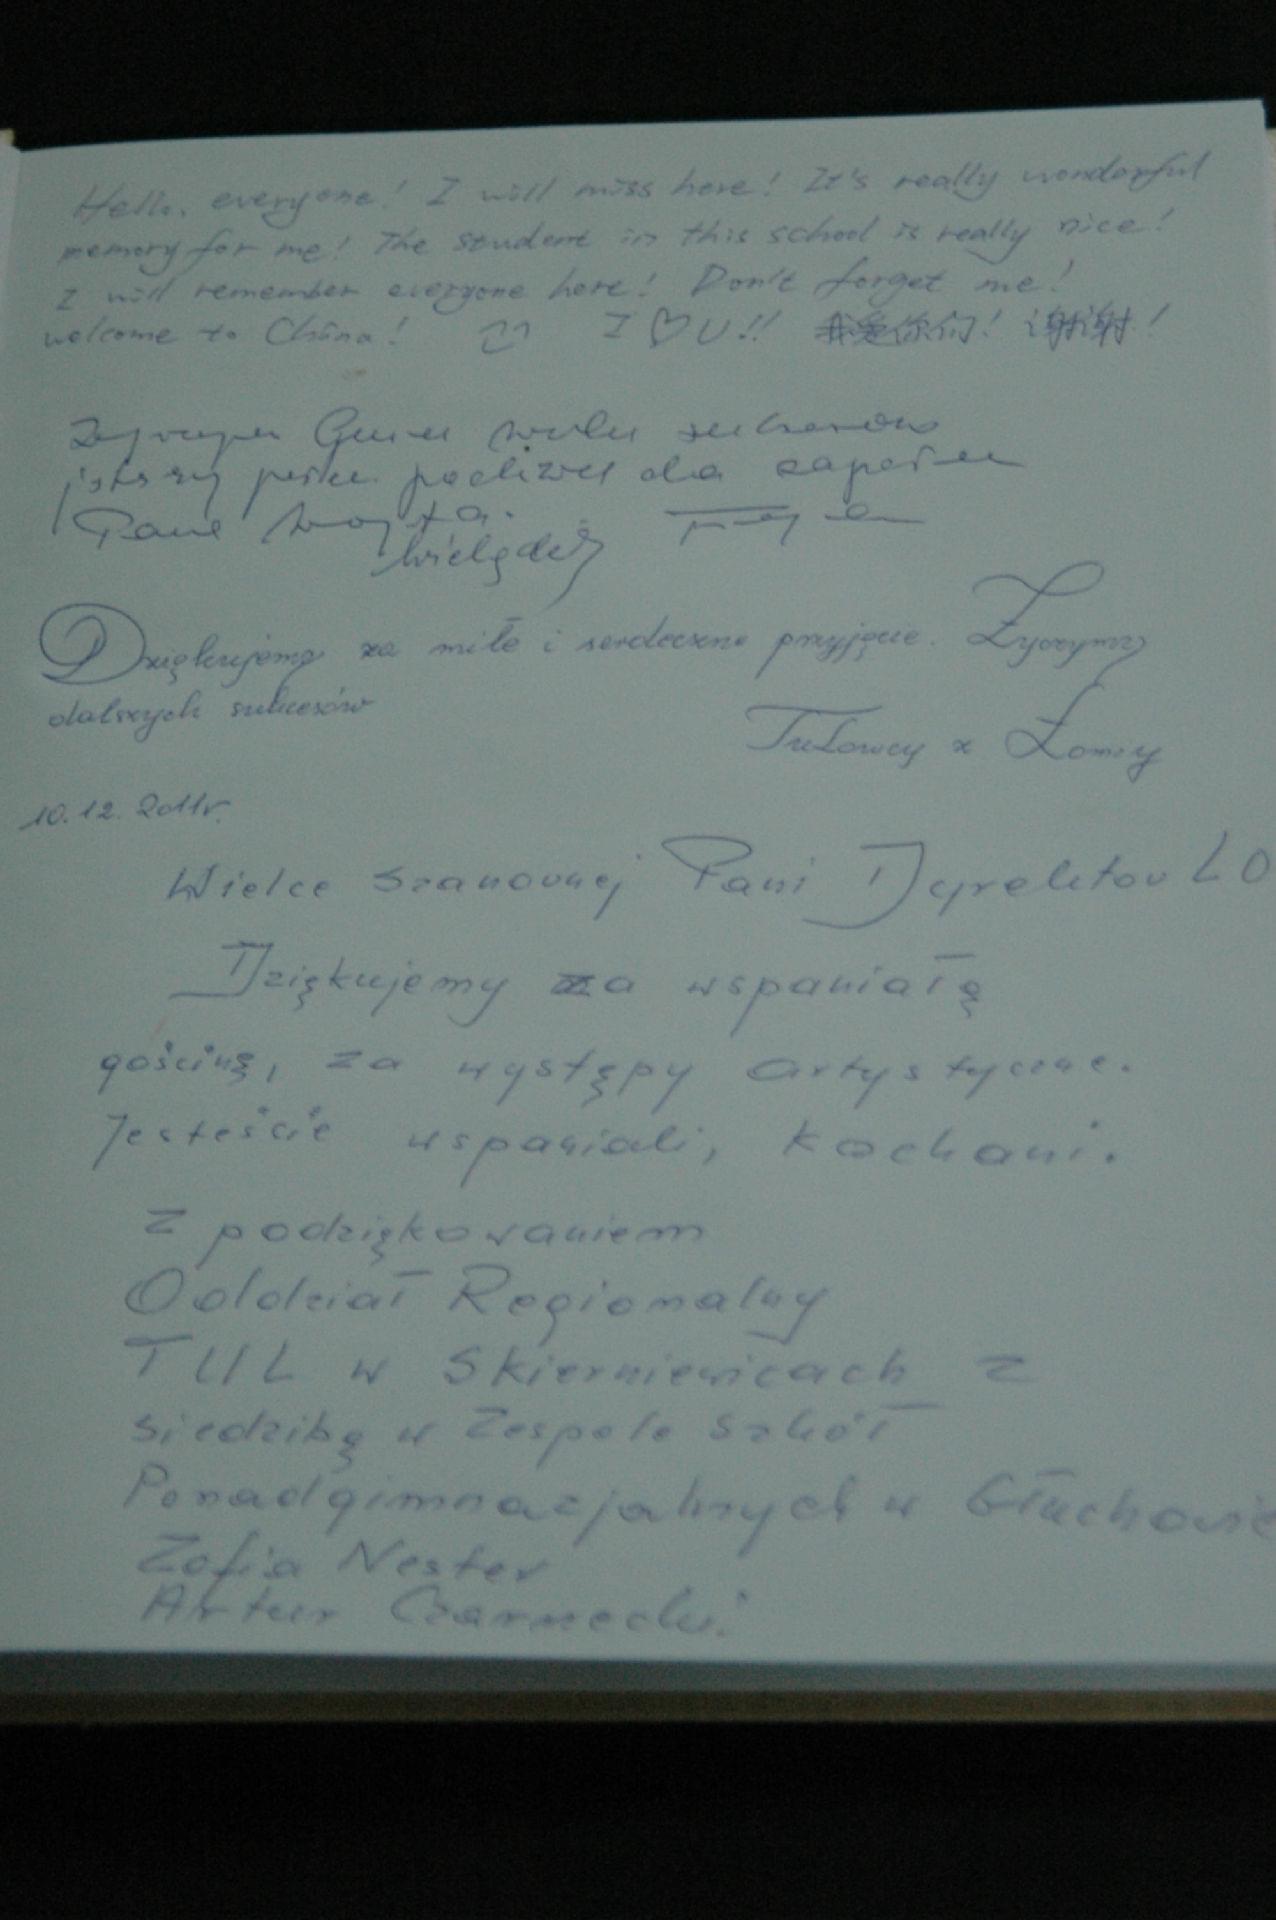 Hello, everyone! I will miss here! It's really wonderful
memory for me! The student in this school is really nice!
I will remember everyone here! Don't forget me!
welcome to China! I ♡ U!! 我爱你们! 谢谢!
Gminie wielu sukcesów
pełen podziwu dla zapału
Pana Wójta.
Dziękujemy za miłe i serdeczne przyjęcie. Życzymy
dalszych sukcesów
TULowcy z Łomży
10.12.2011r.
Wielce Szanownej Pani Dyrektor LO
Dziękujemy za wspaniałą
gościnę, za występy artystyczne.
Jesteście wspaniali, kochani.
Z podziękowaniem
Oddział Regionalny
TUL w Skierniewicach z
siedzibą w Zespole Szkół
Ponadgimnazjalnych w Głuchowie
Zofia Nester
Artur Czarnecki